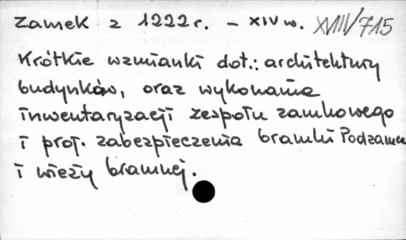 Zamek z 1222 r. – XIV w. XVIII/715
Krótkie wzmianki dot.: architektury
budynków, oraz wykonania
inwentaryzacji zespołu zamkowego
i proj. zabezpieczenia bramki Podzamcze
i wieży bramnej.